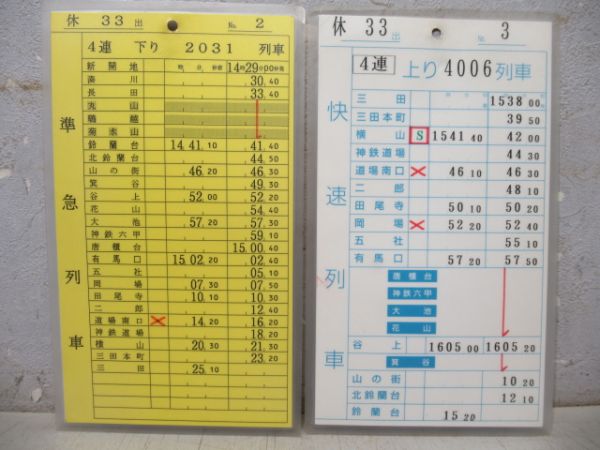 休 33 出 No. 2
4連 下り 2031 列車
準急列車
新開地 時 分 秒着 14時29分00秒発
湊川 .30.40
長田 .33.40
丸山
鵯越
菊水山
鈴蘭台 14.41.10 .41.40
北鈴蘭台 .44.50
山の街 .46.20 .46.30
箕谷 .49.30
谷上 .52.00 .52.20
花山 .54.40
大池 .57.30
神鉄六甲 .59.10
唐櫃台 15.00.40
有馬口 15.02.20 .02.40
五社 .05.10
岡場 .07.30 .07.50
田尾寺 .10.10 .10.30
二郎 .12.40
道場南口 × .14.20 .16.20
神鉄道場 .18.20
横山 .20.30 .21.30
三田本町 .23.20
三田 .25.10
休 33 出 No. 3
4連 上り 4006 列車
快速列車
三田 1538 00
三田本町 39 50
横山 S 1541 40 42 00
神鉄道場 44 30
道場南口 × 46 10 46 30
二郎 48 10
田尾寺 50 10 50 20
岡場 × 52 20 52 40
五社 55 10
有馬口 57 20 57 50
唐櫃台
神鉄六甲
大池
花山
谷上 1605 00 1605 20
箕谷
山の街 10 20
北鈴蘭台 12 10
鈴蘭台 15 20